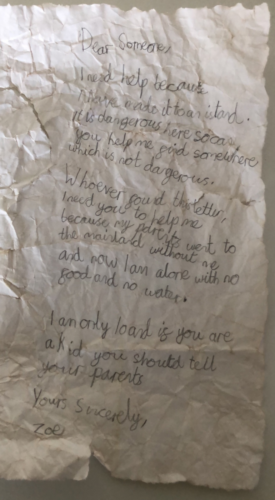 Dear Someone,
I need help because
I have made it to an island.
It is dangerous here so can
you help me find somewhere
which is not dangerous.
Whoever found this letter,
I need you to help me
because my parents went to
the mainland without me
and now I am alone with no
food and no water.
I am only 10 and if you are
a kid you should tell
your parents
Yours sincerely,
Zoe